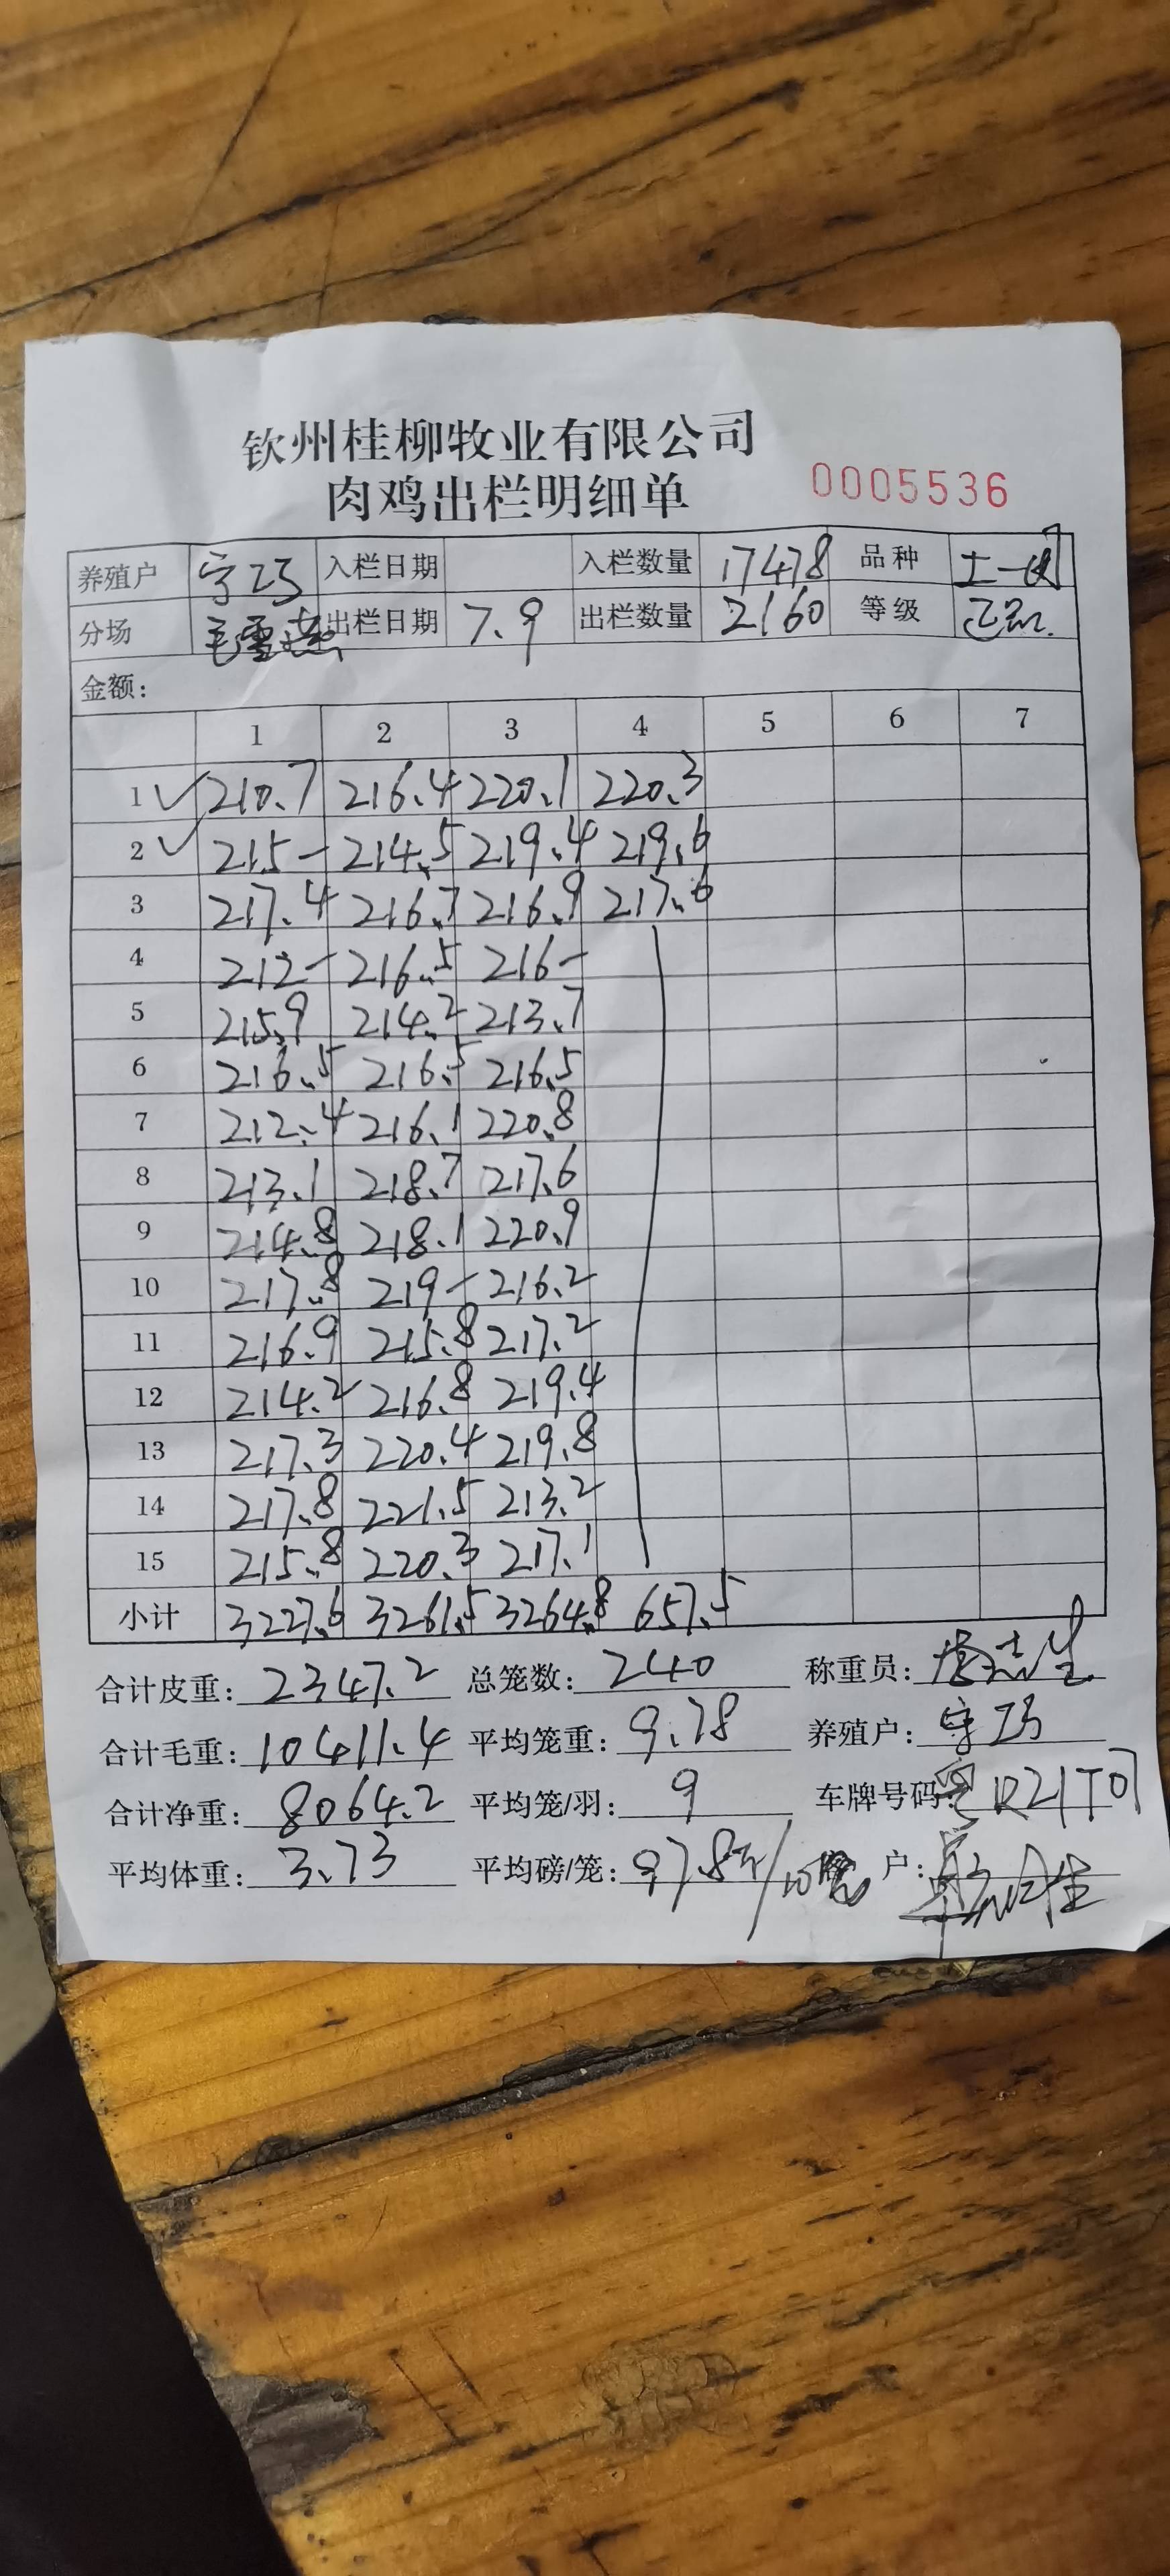 钦州桂柳牧业有限公司
肉鸡出栏明细单 0005536
养殖户 宁巧 入栏日期 入栏数量 17478 品种 土一
分场 毛雪燕 出栏日期 7.9 出栏数量 2160 等级
金额:
1 2 3 4 5 6 7
1 ✓ 210.7 216.4 220.1 220.3
2 ✓ 215- 214.5 219.4 219.6
3 217.4 216.7 216.9 217.6
4 212- 216.5 216-
5 215.9 214.2 213.7
6 216.5 216.5 216.5
7 212.4 216.1 220.8
8 213.1 218.7 217.6
9 214.8 218.1 220.9
10 217.8 219- 216.2
11 216.9 215.8 217.2
12 214.2 216.8 219.4
13 217.3 220.4 219.8
14 217.8 221.5 213.2
15 215.8 220.3 217.1
小计 3227.6 3261.5 3264.8 657.5
合计皮重: 2347.2 总笼数: 240 称重员:
合计毛重: 10411.4 平均笼重: 9.78 养殖户: 宁巧
合计净重: 8064.2 平均笼/羽: 9 车牌号码:
平均体重: 3.73 平均磅/笼: 97.8斤/10 户: